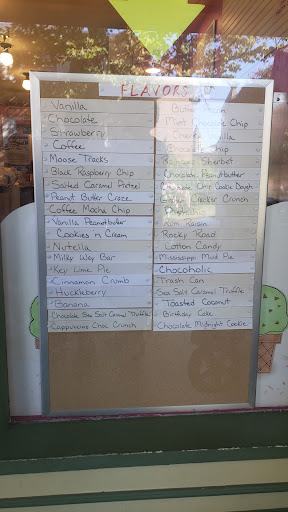 FLAVORS
Vanilla
Chocolate
Strawberry
Coffee
Moose Tracks
Black Raspberry Chip
Salted Caramel Pretzel
Peanut Butter Craze
Coffee Mocha Chip
Vanilla Peanutbutter
Cookies n Cream
Nutella
Milky Way Bar
Key Lime Pie
Cinnamon Crumb
Huckleberry
Banana
Chocolate Sea Salt Caramel Truffle
Cappuccino Choc Crunch
Mint Chip
Chip
Sherbet
Chocolate Peanutbutter
Chocolate Chip Cookie Dough
Cracker Crunch
Pistachio
Rum Raisin
Rocky Road
Cotton Candy
Mississippi Mud Pie
Chocoholic
Trash Can
Sea Salt Caramel Truffle
Toasted Coconut
Birthday Cake
Chocolate Midnight Cookie